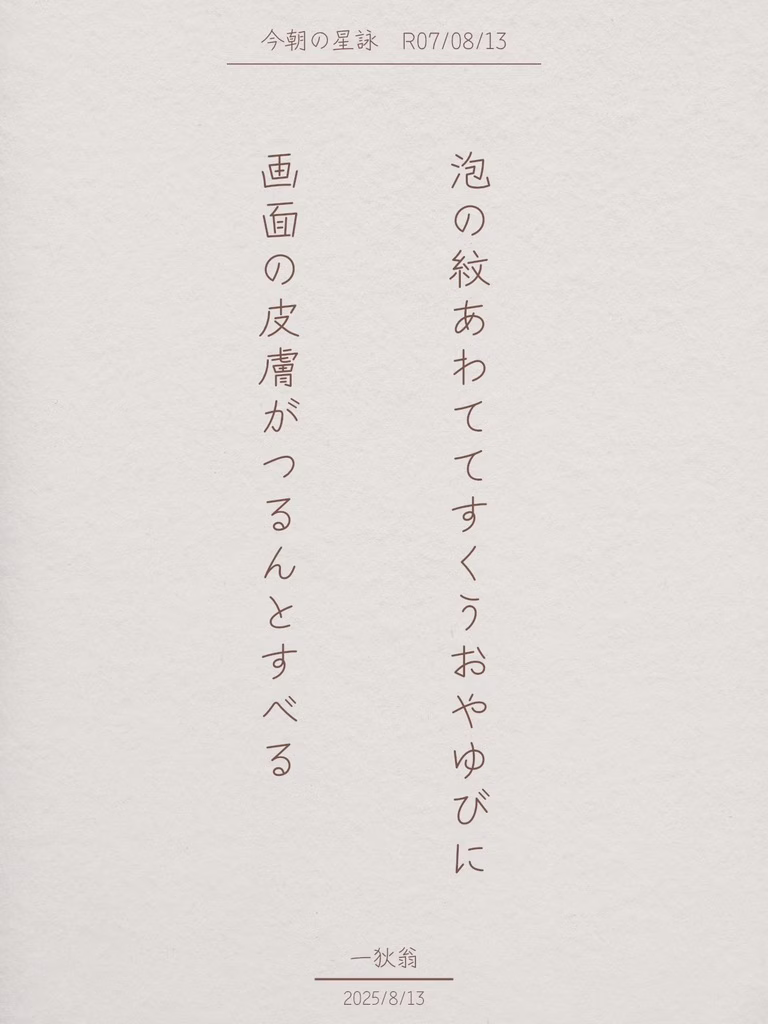 今朝の星詠　R07/08/13
泡の紋あわててすくうおやゆびに
画面の皮膚がつるんとすべる
一狄翁
2025/8/13